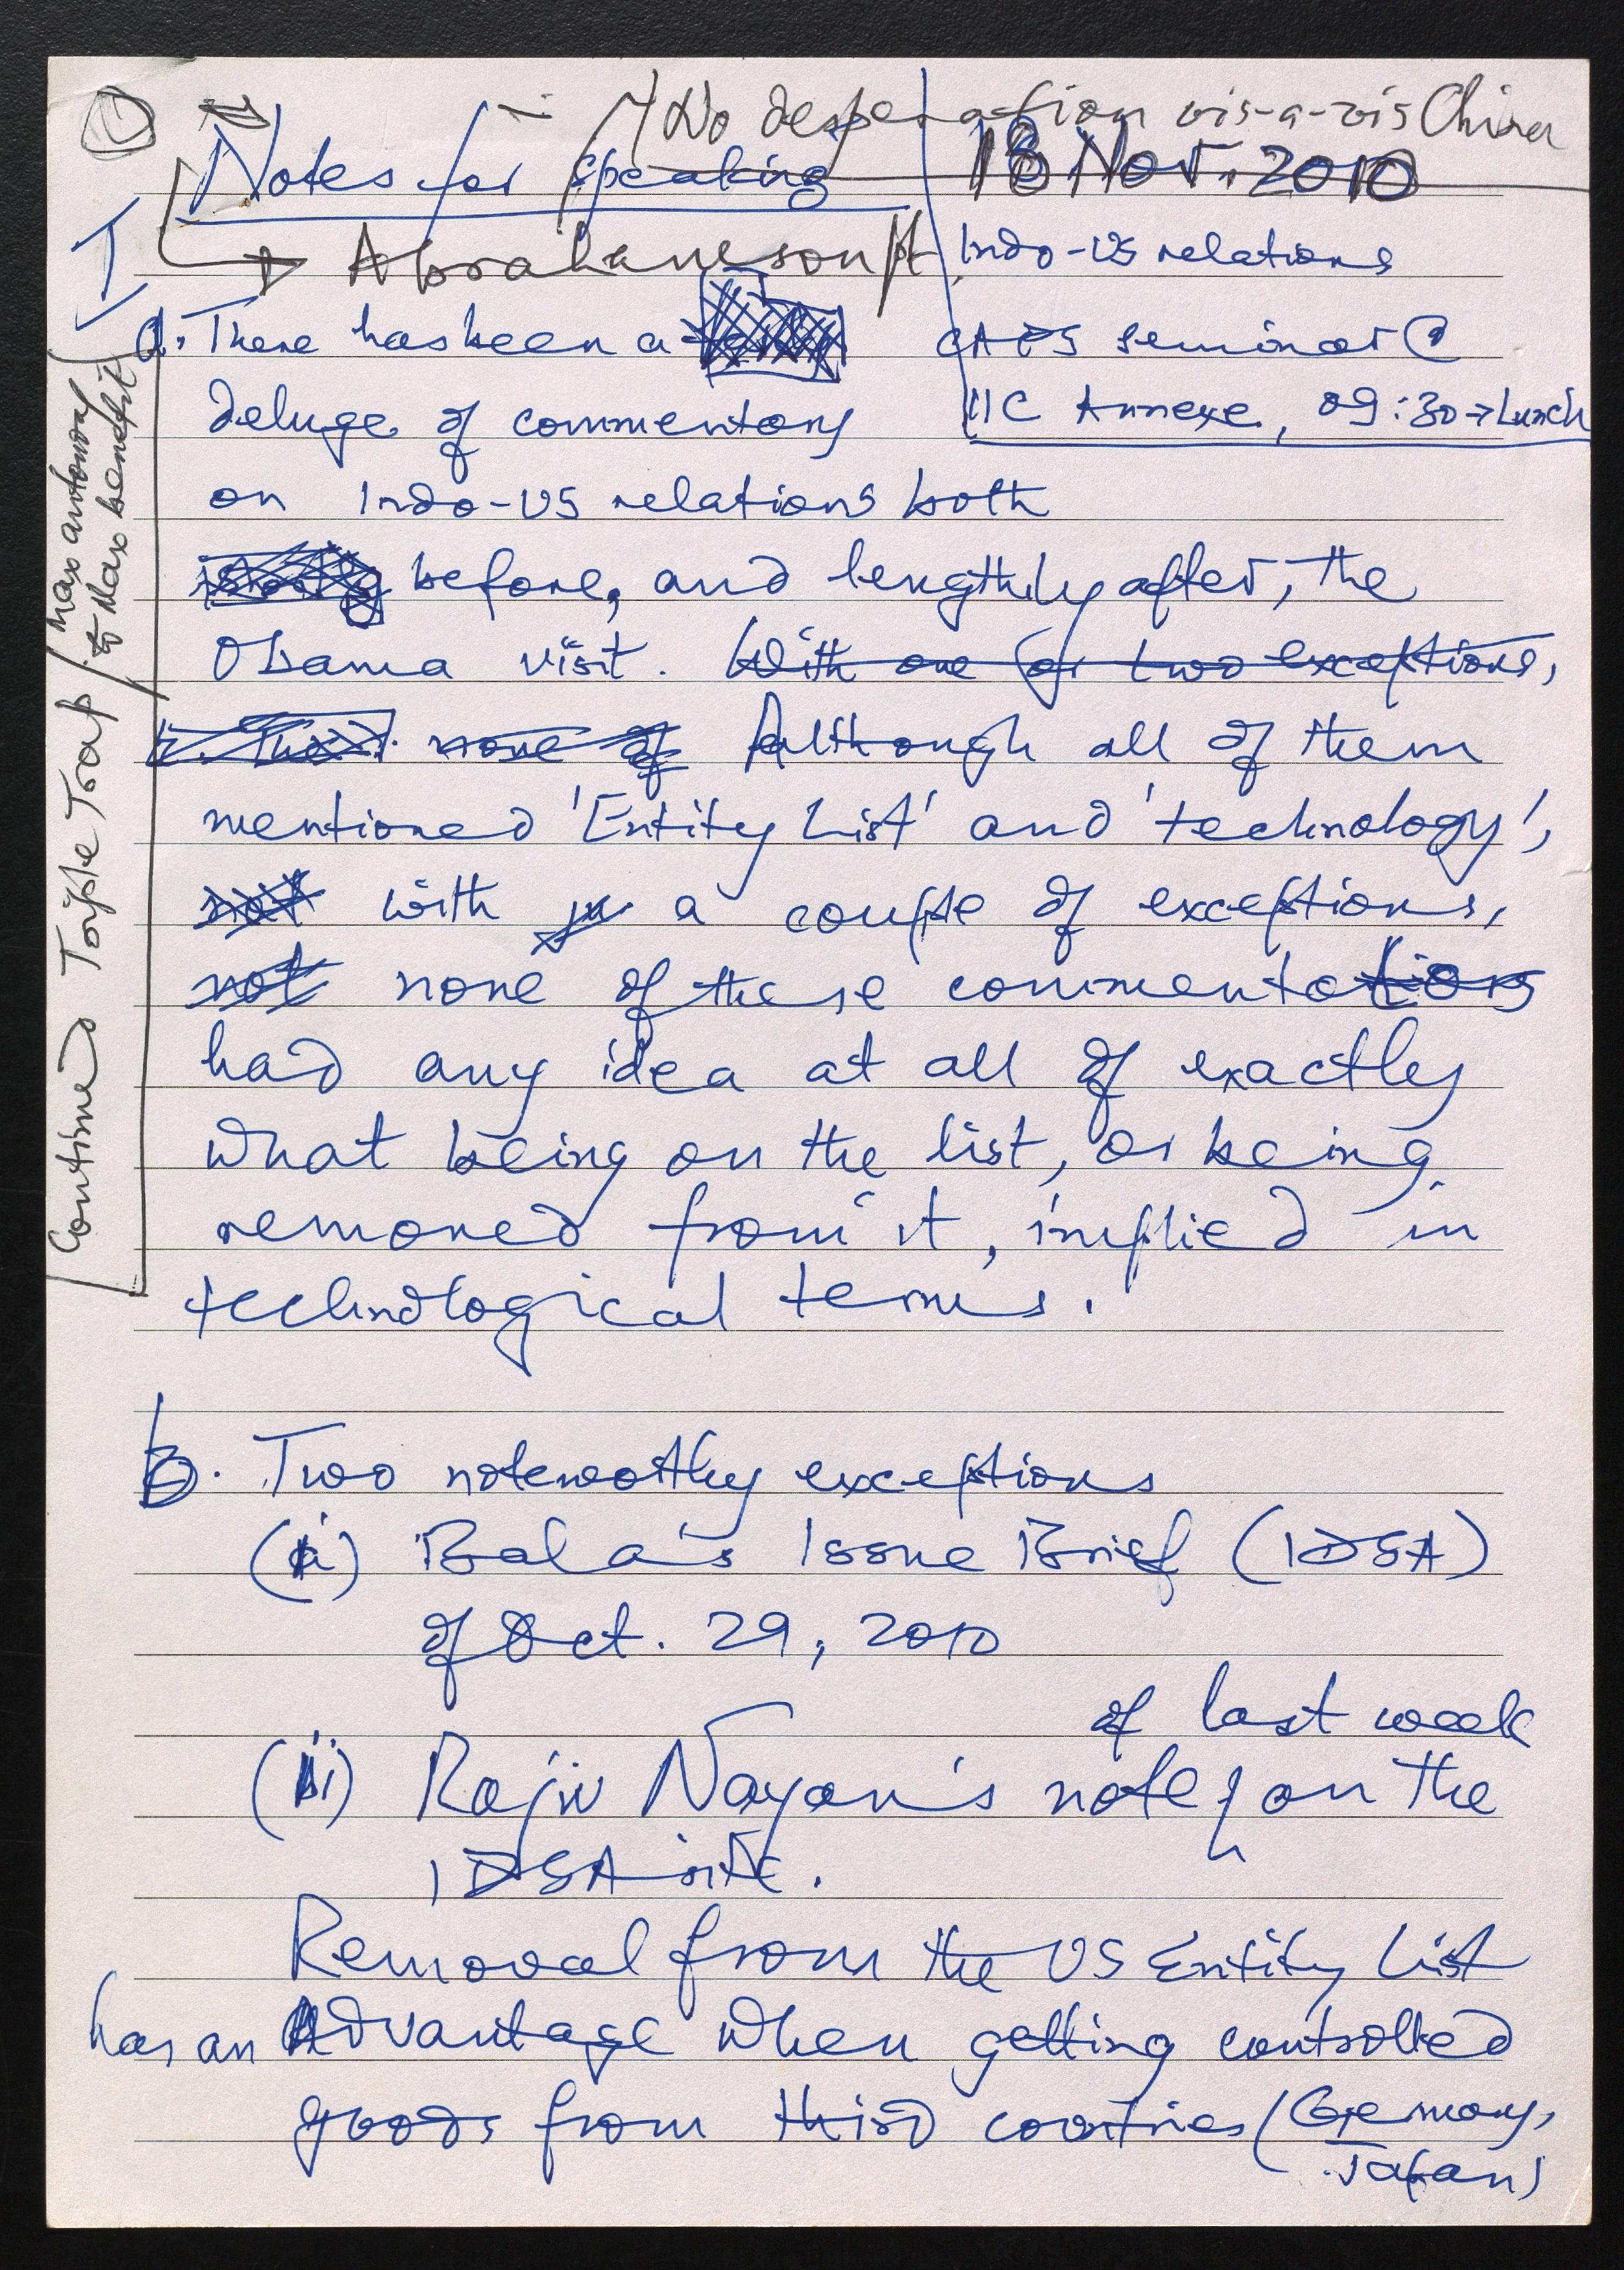 1 No desperation vis-a-vis China
Notes for speaking
18 Nov. 2010
I
→ Abrahamson pt.
Indo-US relations
CAPS seminar @
IIC Annexe, 09:30 → Lunch
a. There has been a
deluge of commentary
on Indo-US relations both
before, and lengthily after, the
Obama visit. With one or two exceptions,
none of Although all of them
mentioned 'Entity List' and 'technology',
not with a couple of exceptions,
not none of these commentators
had any idea at all of exactly
what being on the list, or being
removed from it, implied in
technological terms.
b. Two noteworthy exceptions
(i) Bala's Issue Brief (IDSA)
of Oct. 29, 2010
of last week
(ii) Rajiv Nayan's note on the
IDSA site.
Removal from the US Entity List
has an Advantage when getting controlled
goods from third countries (Germany,
Japan)
Continued Triple Trap / Max autonomy
& Max benefit